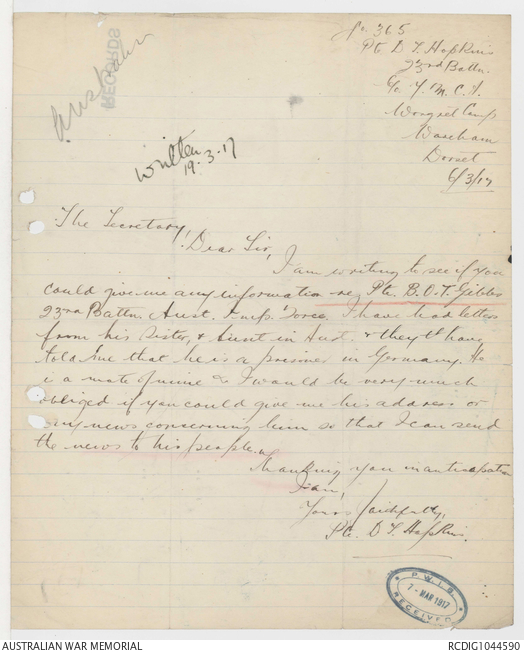 No 365
Pte D T Hopkins
23rd Battn.
C/o Y.M.C.A.
Worgret Camp
Wareham
Dorset
6/3/17
Australian
RECORDS
Written
19.3.17
The Secretary,
Dear Sir,
I am writing to see if you
could give me any information re Pte. B.O.T. Gibbs
23rd Battn Aust. Imp. Force. I have had letters
from his Sister, & Aunt in Aust. & they have
told me that he is a prisoner in Germany. He
is a mate of mine & I would be very much
obliged if you could give me his address or
any news concerning him so that I can send
the news to his people.
Thanking you in anticipation
I am,
Yours faithfully,
Pte. D T Hopkins.
P.W.I.B.
7 - MAR 1917
RECEIVED
AUSTRALIAN WAR MEMORIAL
RCDIG1044590